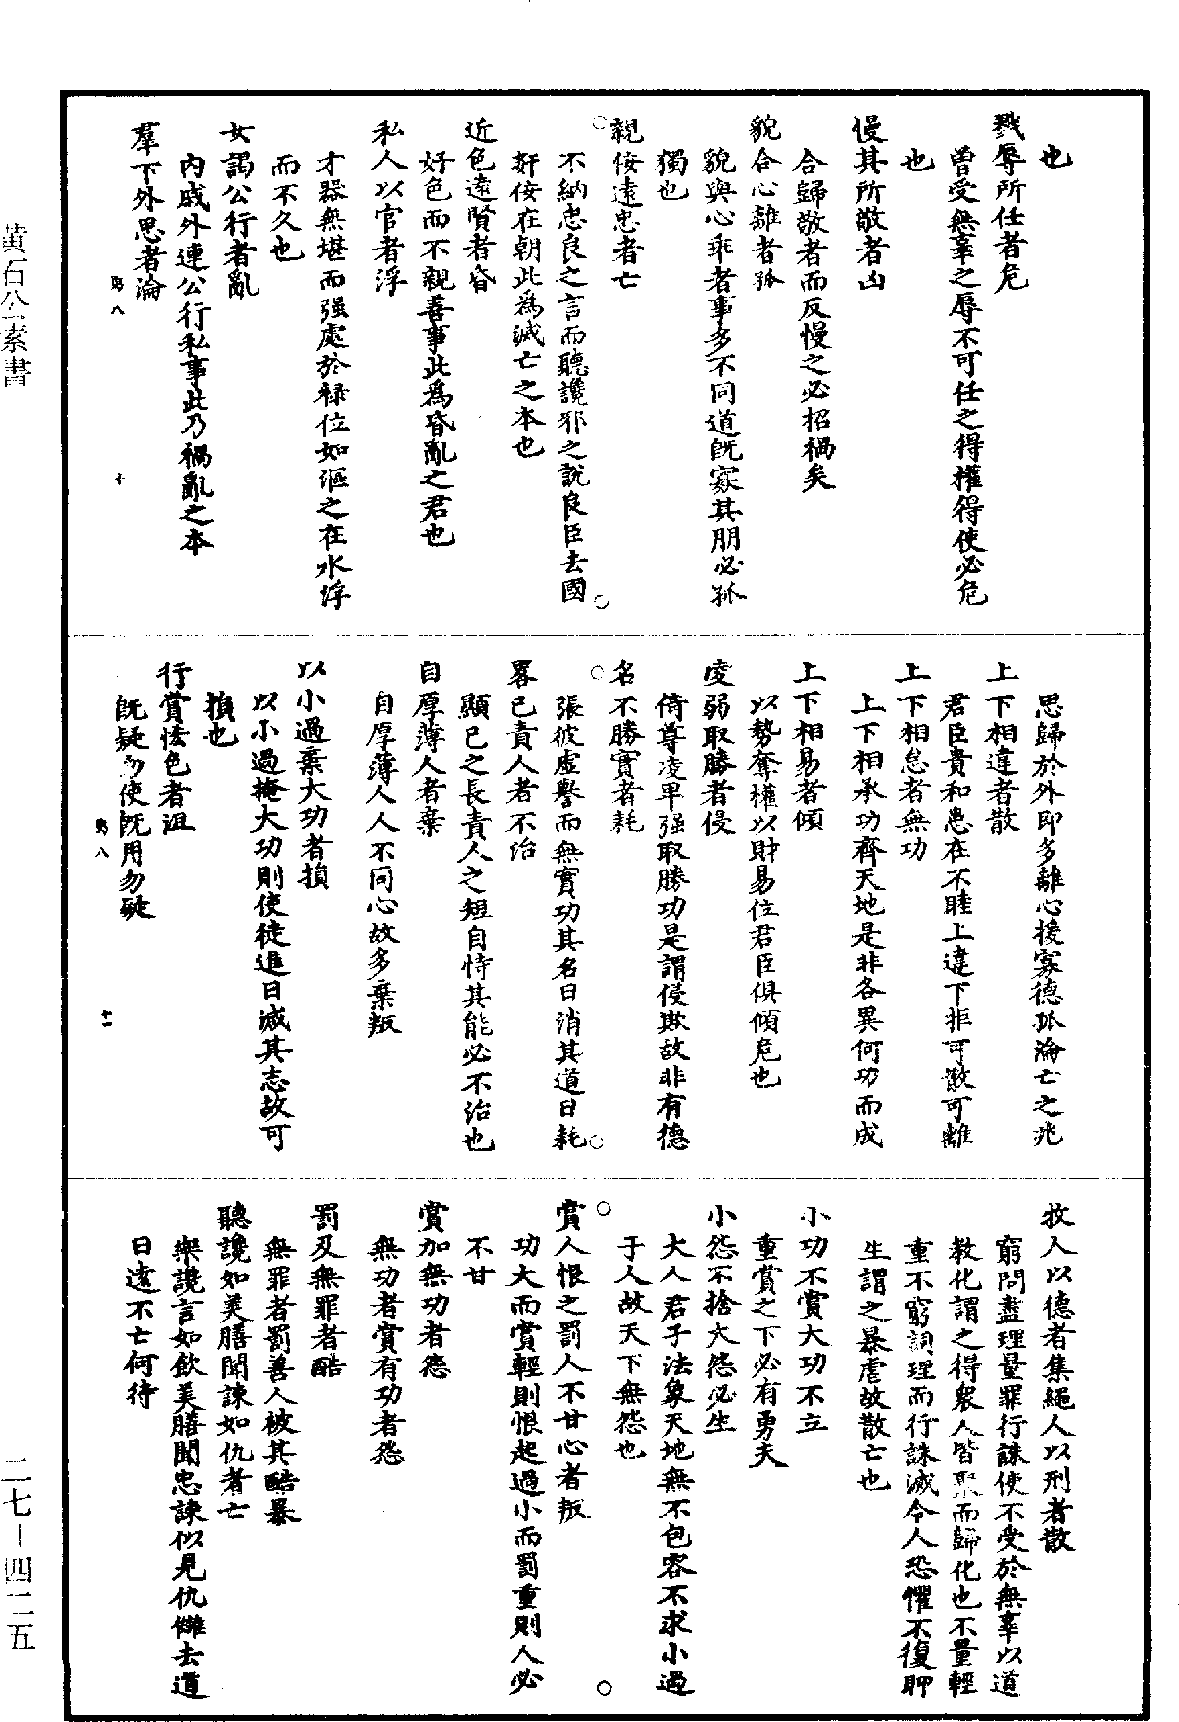 也
戮辱所任者危
曾受無辜之辱不可任之得權得使必危
也
慢其所敬者凶
合歸敬者而反慢之必招禍矣
貌合心離者孤
貌與心乖者事多不同道旣寡其朋必孤
獨也
親佞遠忠者亡
不納忠良之言而聽讒邪之說良臣去國
奸佞在朝此爲滅亡之本也
近色遠賢者昏
好色而不親善事此爲昏亂之君也
私人以官者浮
才器無堪而强處於祿位如漚之在水浮
而不久也
女謁公行者亂
內戚外連公行私事此乃禍亂之本
羣下外思者淪
八
十
思歸於外卽多離心援寡德孤淪亡之兆
上下相違者散
君臣貴和患在不睦上違下拒可散可離
上下相怠者無功
上下相承功齊天地是非各異何功而成
上下相易者傾
以勢奪權以財易位君臣俱傾危也
凌弱取勝者侵
倚尊凌卑强取勝功是謂侵欺故非有德
名不勝實者耗
張彼虛譽而無實功其名日消其道日耗
畧已責人者不治
顯已之長責人之短自恃其能必不治也
自厚薄人者棄
自厚薄人人不同心故多棄叛
以小過棄大功者損
以小過掩大功則使徒進日減其志故可
損也
行賞恡色者沮
旣疑勿使旣用勿疑
八
十一
牧人以德者集繩人以刑者散
窮問盡理量罪行誅使不受於無辜以道
敎化謂之得衆人皆聚而歸化也不量輕
重不窮詞理而行誅滅令人恐懼不復聊
生謂之暴虐故散亡也
小功不賞大功不立
重賞之下必有勇夫
小怨不捨大怨必生
大人君子法象天地無不包容不求小過
于人故天下無怨也
賞人恨之罰人不甘心者叛
功大而賞輕則恨起過小而罰重則人必
不甘
賞加無功者怨
無功者賞有功者怨
罰及無罪者酷
無罪者罰善人被其酷暴
聽讒如美膳聞諫如仇者亡
樂讒言如飲美膳聞忠諫似見仇讎去道
日遠不亡何待
黃石公素書
二七－四二五